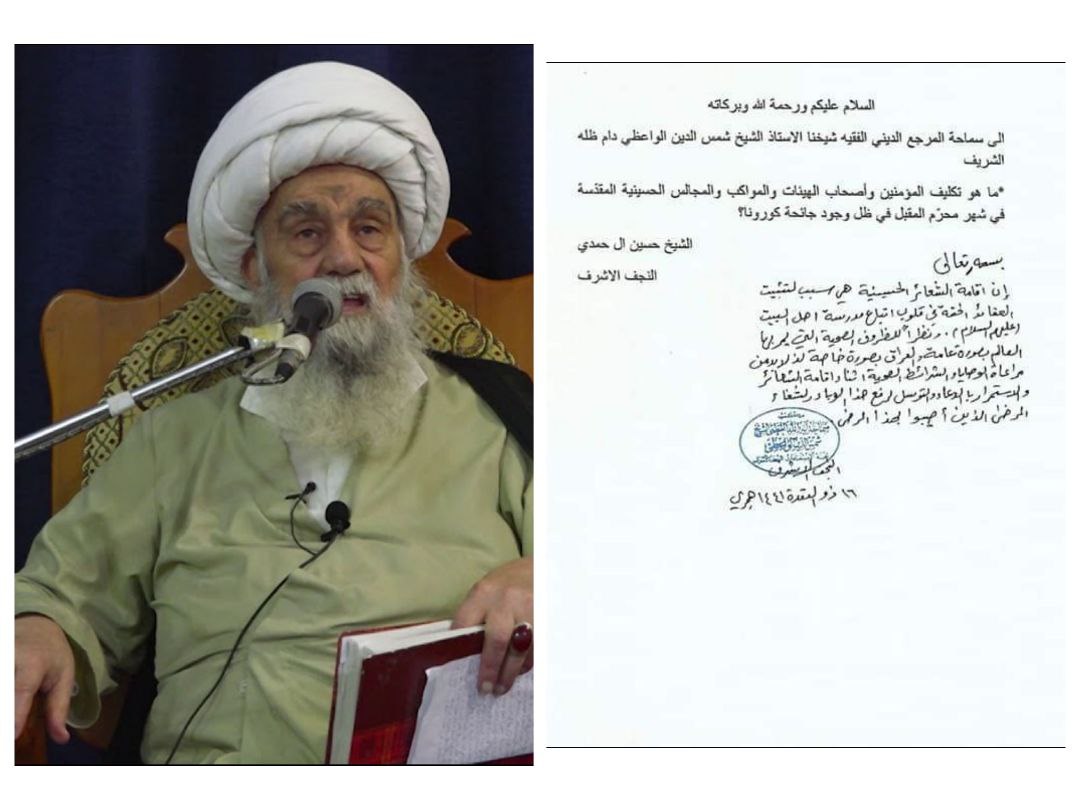 السلام عليكم ورحمة الله وبركاته
الى سماحة المرجع الديني الفقيه شيخنا الاستاذ الشيخ شمس الدين الواعظي دام ظله
الشريف
*ما هو تكليف المؤمنين وأصحاب الهيئات والمواكب والمجالس الحسينية المقدّسة
في شهر محرّم المقبل في ظل وجود جائحة كورونا؟
الشيخ حسين ال حمدي
النجف الاشرف
بسمه تعالى
إن اقامة الشعائر الحسينية هي سبب لتثبيت
العقائد الحقة في قلوب اتباع مدرسة اهل البيت
(عليهم السلام). ونظراً للظروف الصحية التي يمر بها
العالم بصورة عامة والعراق بصورة خاصة لذا لابد من
مراعاة الوصايا والشرائط الصحية اثناء اقامة الشعائر
والاستمرار بالدعاء والتوسل لرفع هذا الوباء ولشفاء
المرضى الذين أصيبوا بهذا المرض
النجف الاشرف
١٦ ذو القعدة ١٤٤١ هجري